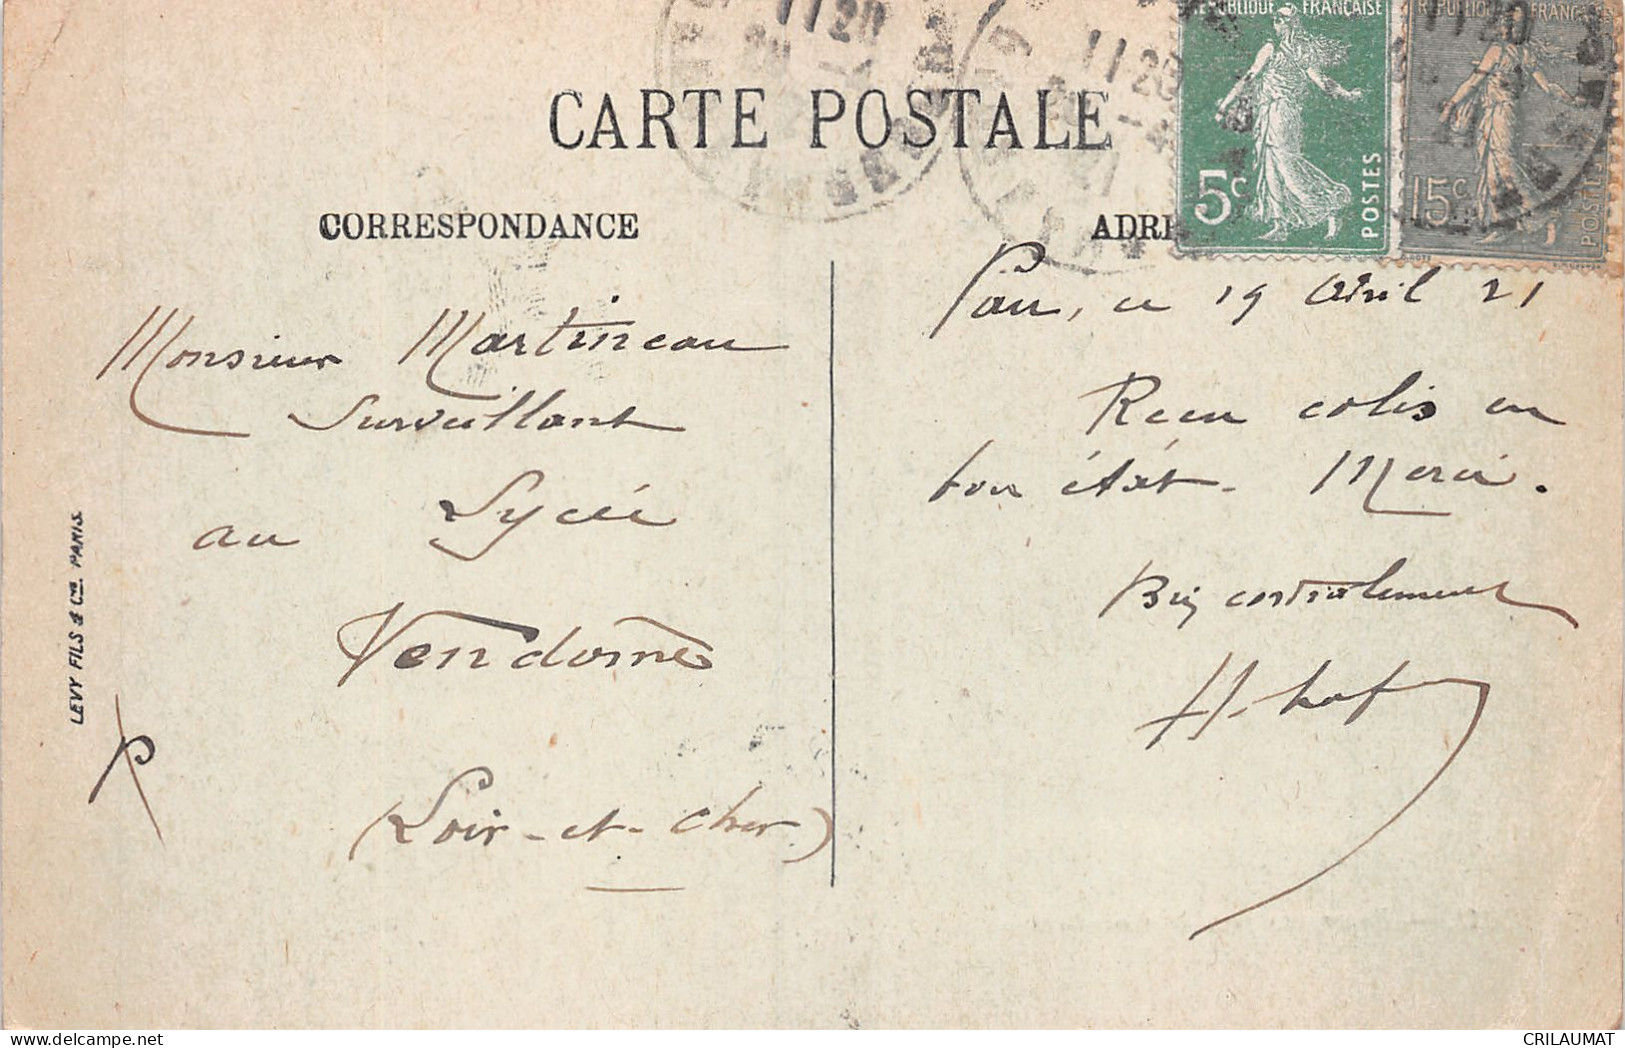 CARTE POSTALE
CORRESPONDANCE
ADRE
RÉPUBLIQUE FRANÇAISE
5c
POSTES
RÉPUBLIQUE FRANÇAISE
15c
POSTES
11 20
11 20
11 20
Monsieur Martineau
Surveillant
au Lycée
Vendôme
(Loir-et-Cher)
LEVY FILS & Cie PARIS.
Pau, ce 19 Avril 21
Reçu colis en
bon état. Merci.
Bien cordialement
CRILAUMAT